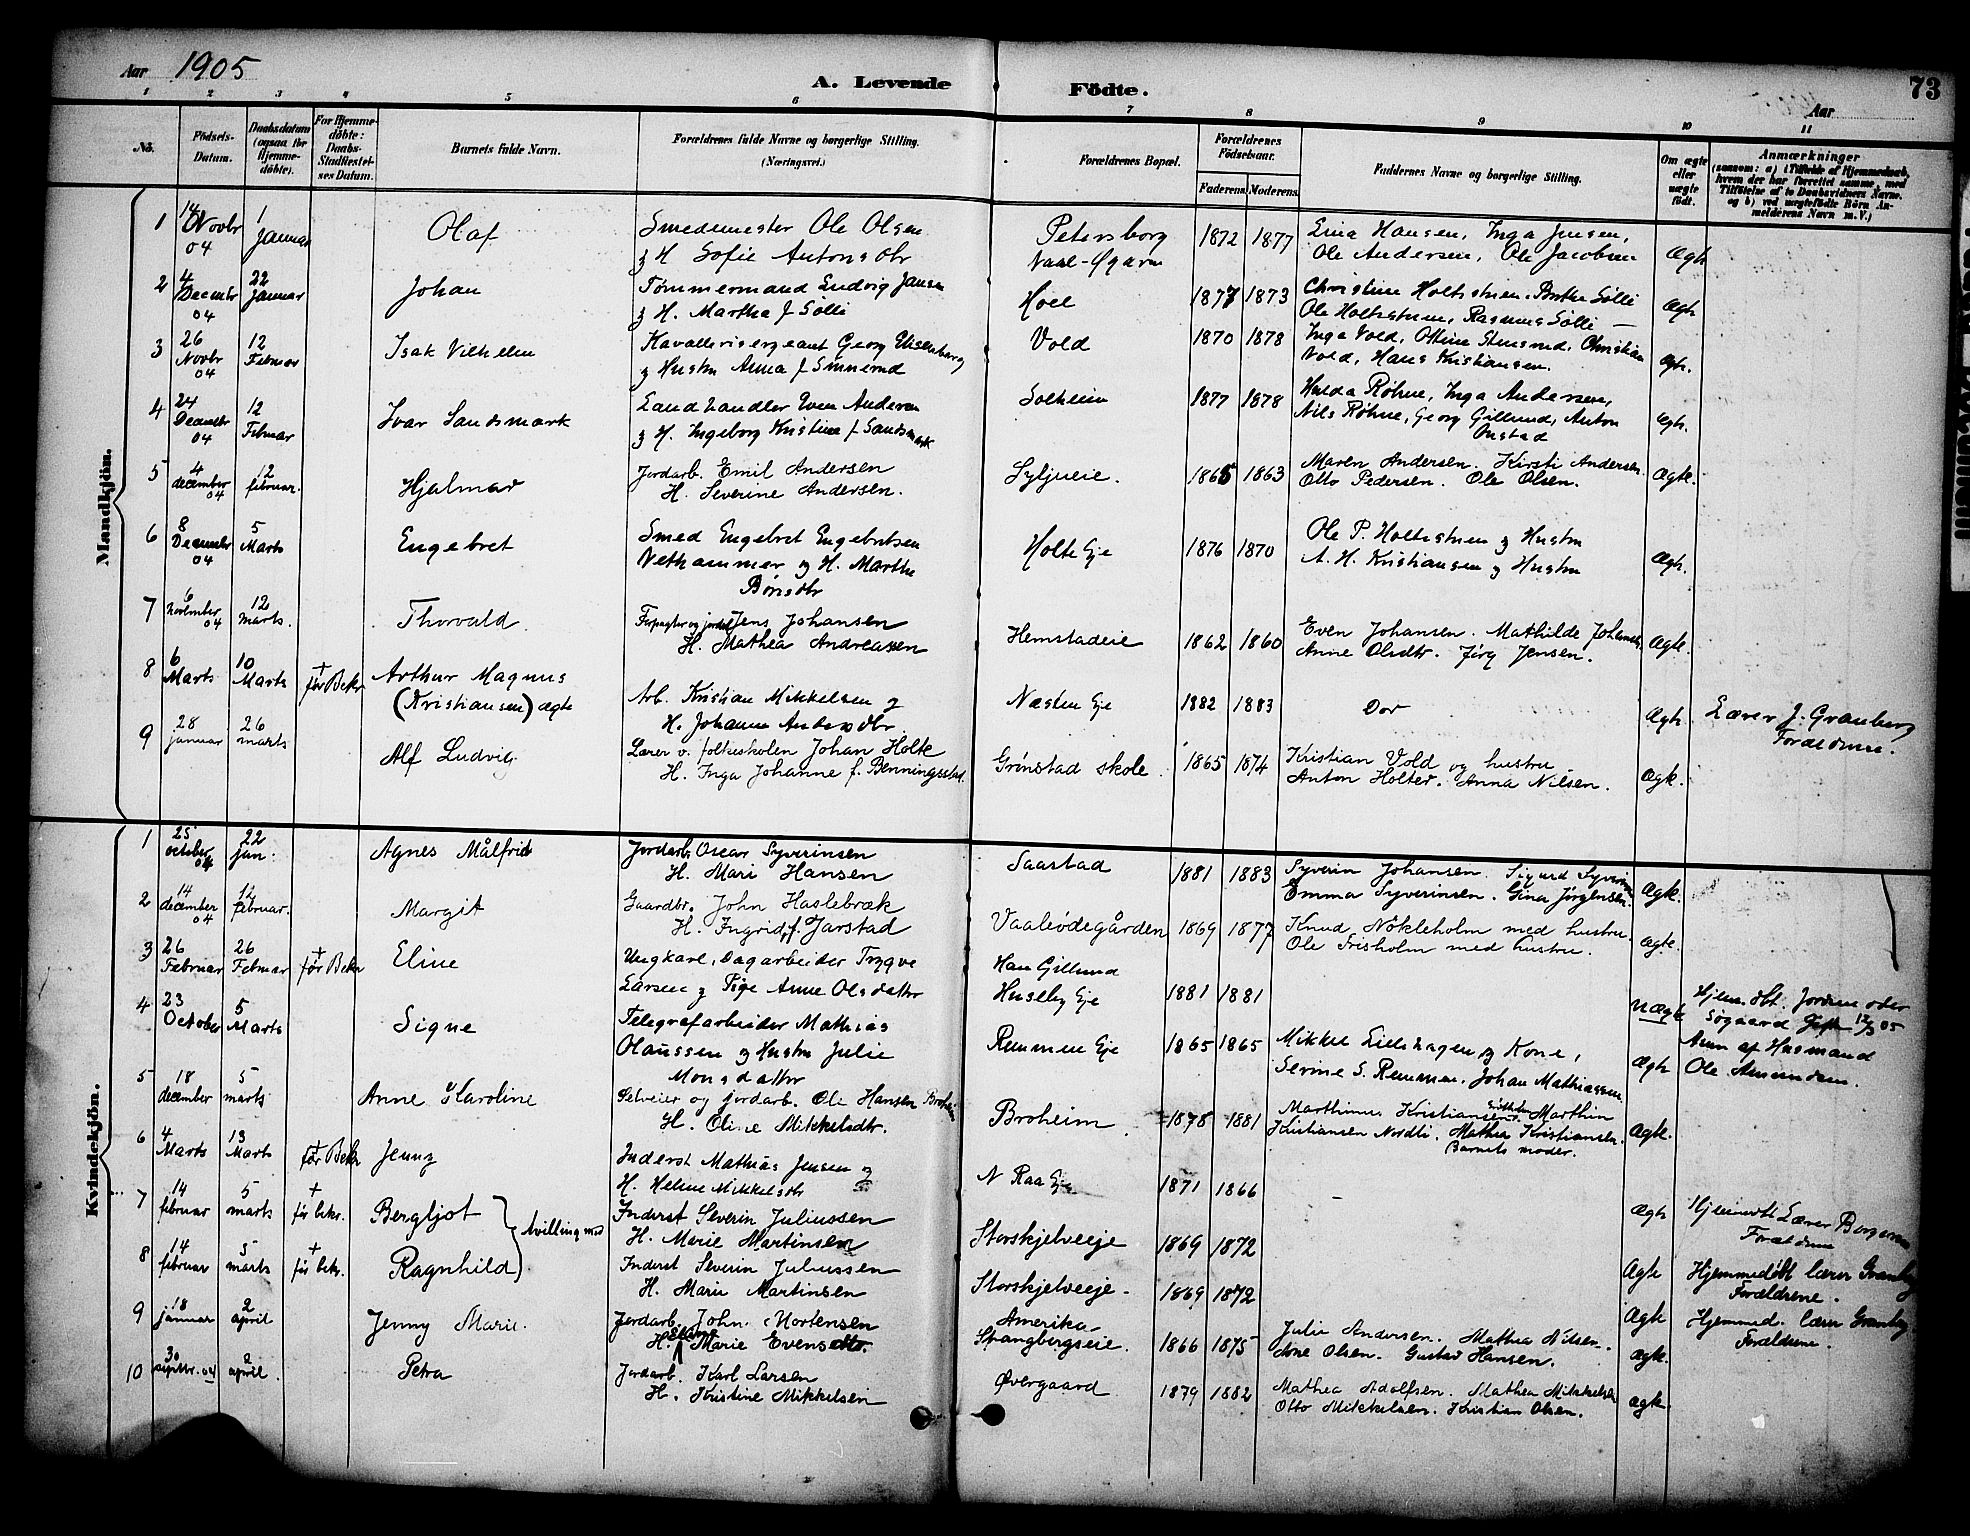 Aar 1905
A. Levende Födte.
73
Aar
1 2 3 4 5 6 7 8 9 10 11
No.
Födsels-Datum.
Daabsdatum (ogsaa for Hjemme-döbte).
For Hjemme-döbte: Daabs-Stadfæstel-ses Datum.
Barnets fulde Navn.
Forældrenes fulde Navne og borgerlige Stilling.
(Næringsvei.)
Forældrenes Bopæl.
Forældrenes Födselsaar.
Faderens. Moderens.
Faddernes Navne og borgerlige Stilling.
Om ægte eller uægte födt.
Anmærkninger
(saasom: a) i Tilfælde af Hjemmedaab, hvem der har forrettet samme, med Tilföielse af to Daabsvidners Navne, og b) ved uægtefödte Börn An-melderens Navn m. V.)
Mandkjön.
1 14 Novbr 04 1 Januar Olaf Smedmester Ole Olsen
og H Sofie Antonsdtr Petersborg 1872 1877 Lina Hansen, Inga Jensen,
Ole Andersen, Ole Jacobsen Ægte
2 4 Decembr 04 22 Januar Johan Tømmermand Ludvig Jansen
og H. Martha f Sølli Hoel 1877 1873 Christine Holtestuen. Berthe Sølli
Ole Holtestuen, Rasmus Sølli Ægte
3 26 Novbr 04 12 Februar Isak Vilhelm Kavallerisergeant Georg
og Hustru Anna f Vold 1870 1878 Inga Vold, Christian
Vold, Hans Kristiansen. Ægte.
4 24 Decembr 04 12 Februar Ivar Sandsmark Landhandler Iver Andersen
og H. Ingeborg Kristine f Sandsmark Solheim 1877 1878 Hulda Røhne, Inga Andersen,
Nils Røhne, Georg Gillund, Anton
Onstad Ægte.
5 4 december 04 12 februar. Hjalmar Jordarb. Emil Andersen
H. Severine Andersen. Syljueie. 1865 1863 Maren Andersen. Kirsti Andersen.
Otto Pedersen. Ole Olsen. Ægte.
6 8 December 04 5 Marts Engebret Smed Engebret Engebretsen
Vethammer og H. Marthe Holte Eje 1876 1870 Ole P. Holtestuen og Hustru
A. H. Kristiansen og Hustru Ægte.
7 6 november 04 12 marts. Thorvald. Jens Johansen
H. Mathea Andreassen Hemstadeie 1862 1860 Even Johansen. Mathilde Johansen.
Anne Olsdtr. Jørg Jensen. Ægte.
8 6 Marts 10 Marts + før Bekr Arthur Magnus
(Kristiansen) ægte Arb. Kristian Mikkelsen og
H. Johanne Andersdtr Næsten Eje 1882 1883 Ægte Lærer J. Granberg
Forældrene.
9 28 januar 26 marts Alf Ludvig. Lærer v. folkeskolen Johan Holte
H. Inga Johanne f. Benningstad. Grönstad skole. 1865 1874 Kristian Vold og hustru
Anton Holter. Anna Nilsen. Ægte.
Kvindekjön.
1 25 october 04 22 jan. Agnes Målfrid Jordarb. Oscar Syverinsen
H. Mari Hansen Saastad 1881 1883 Syverin Johansen. Sigurd Syverinsen
Emma Syverinsen. Gina Jörgensen. Ægte.
2 14 december 04 12 februar. Margit Gaardbr. John Haslebræk
H. Ingrid f. Jarstad Vaalerödegården 1869 1877 Knud Nökleholm med hustru.
Ole Frisholm med hustru. Ægte.
3 26 Februar 26 Februar + før Bekr Eline Ungkarl, Dagarbeider Trygve
Larsen og Pige Anne Olsdatter Han Gillund
Huseby Eje 1881 1881 Uægte Hjem. dbt. Jordmoder
Søgaard 12/3 05
4 23 October 5 Marts Signe Telegrafarbeider Mathias
Olaussen og Hustru Julie
Monsdatter Remmen Eje 1865 1865 Mikkel Lielshagen og Kone,
Serine S. Remmen. Johan Mathiassen Ægte Anm af Husmand
Ole Amundsen.
5 18 december 5 marts Anne Karoline Selveier og jordarb. Ole Hansen Broheim
H. Oline Mikkelsdtr. Broheim. 1878 1881 Marthinus Kristiansen Marthin
Kristiansen Nordli. Mathea Kristiansen.
Barnets moder. Ægte.
6 4 Marts 13 Marts + før Bekr Jenny Inderst Mathias Jensen og
H. Helene Mikkelsdtr N Raa Eje 1871 1866 - Ægte Hjemmedbt Lærer Borgersen
Forældrene
7 14 februar 5 marts + før bekr. Bergljot tvilling med Inderst Severin Juliussen
H. Marie Martinsen Storskjelveeje 1869 1872 Ægte Hjemmedöbt lærer Granberg
Forældrene.
8 14 februar 5 marts + før bekr. Ragnhild Inderst Severin Juliussen
H. Marie Martinsen Storskjelveeje. 1869 1872 Ægte Hjemmed. lærer Granberg.
Forældrene.
9 18 januar 2 april Jenny Marie. Jordarb. John Mortensen
H. Marie Evensdtr. Amerika-
Spangbergseie. 1866 1875 Julie Andersen. Mathea Nilsen.
Arne Olsen. Gustav Hansen. Ægte.
10 30 septbr. 04 2 april. Petra Jordarb. Karl Larsen
H. Kristine Mikkelsen Övergaard 1879 1882 Mathea Adolfsen. Mathea Mikkelsen
Otto Mikkelsen. Kristian Olsen. Ægte.